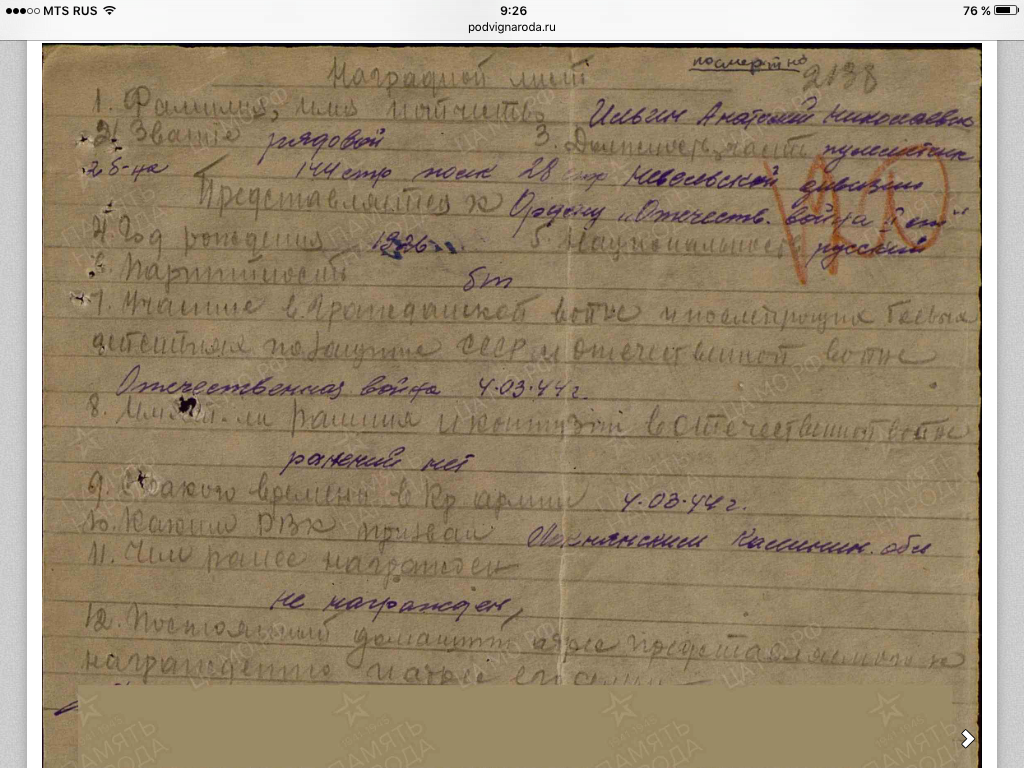 MTS RUS 9:26 76 %
podvignaroda.ru
посмертно
Наградной лист 2138
1. Фамилия, имя и отчество Ильин Анатолий Николаевич
2. Звание рядовой 3. Должность, часть пулеметчик
2 б-на 144 стр полк 28 стр Невельской дивизии
Представляется к Ордену "Отечеств. война
4. Год рождения 1926 5. Национальность русский
6. Партийность бп
7. Участие в гражданской войне и последующих боевых
действиях по защите СССР и отечественной войне
Отечественная война 4.03.44 г.
8. Имеет ли ранения и контузии в отечественной войне
ранений нет
9. С какого времени в Кр армии 4.03.44 г.
10. Каким РВК призван Калинин. обл
11. Чем ранее награжден
не награжден,
12. Постоянный домашний адрес представляемого к
награждению и адрес его семьи
ПАМЯТЬ НАРОДА
ЦАМО.РФ